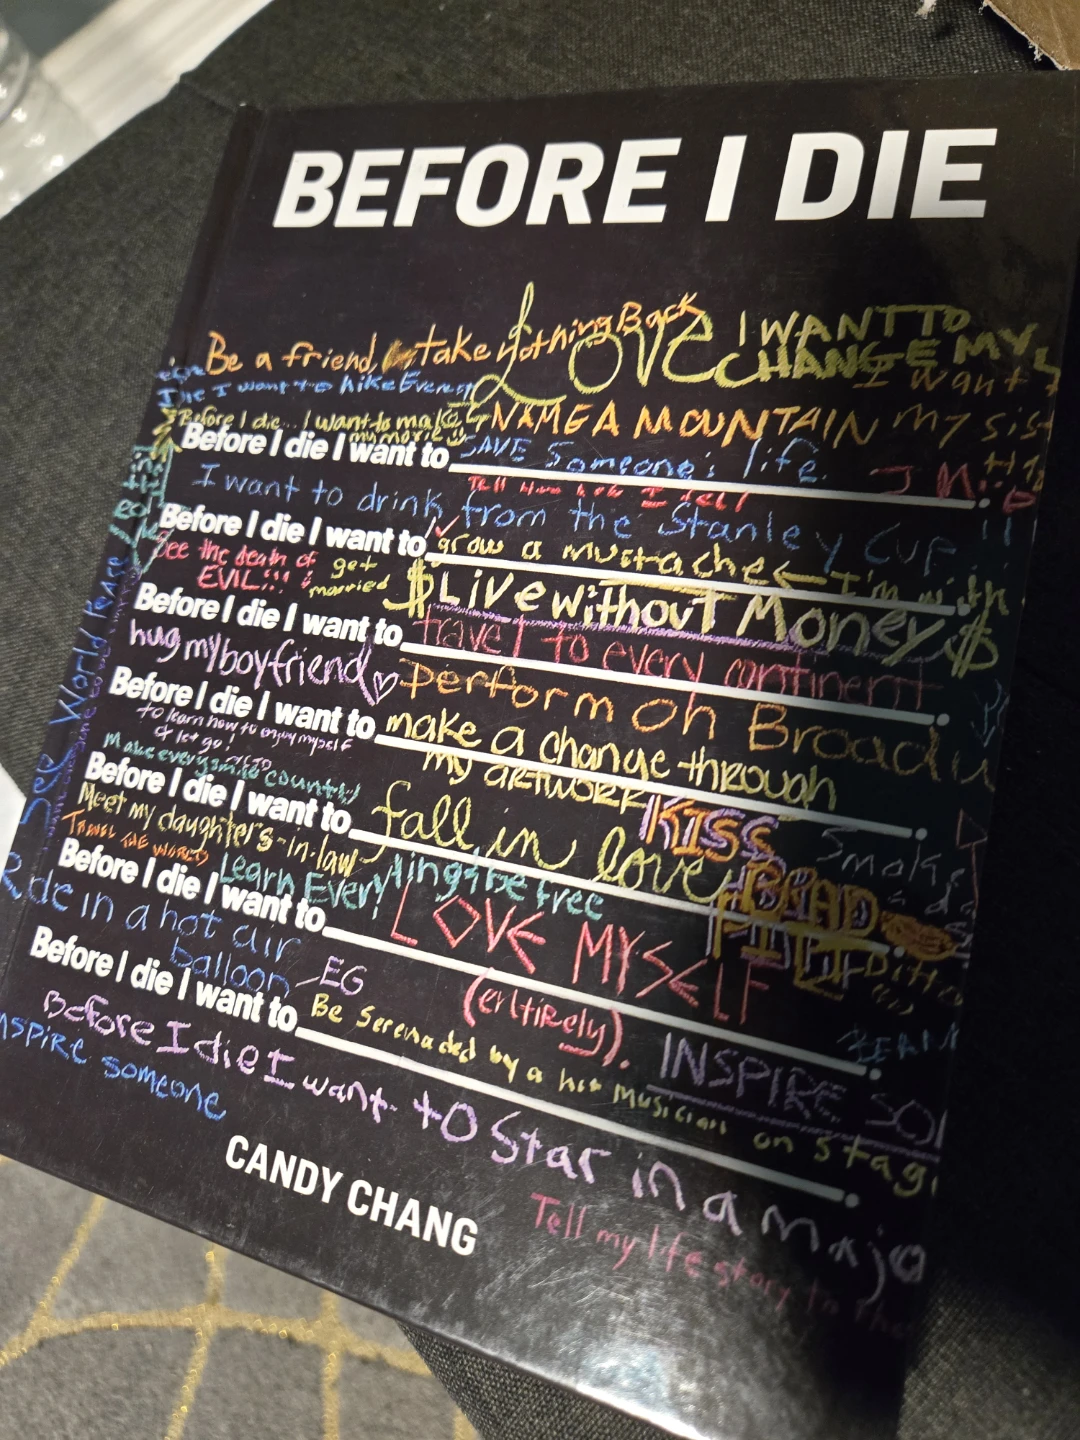 BEFORE I DIE
Be a friend, take nothing Back
Love
I WANT TO
CHANGE MY
I want
Die I want to hike Everest
NAME A MOUNTAIN
my sis
Before I die... I want to make
my movie
Before I die I want to SAVE Someone's life.
Tell him how I feel
I want to drink from the Stanley Cup
Before I die I want to grow a mustache ← I'm with
See the death of
EVIL!!!
get
married
$Live without Money$
Before I die I want to travel to every continent
hug my boyfriend ♡
Perform on Broad
Before I die I want to make a change through
my ARTWORK
to learn how to enjoy myself
& let go!
Before I die I want to fall in love
KISS
Smok
Meet my daughter's-in-law
TRAVEL THE WORLD
Learn Everything + be free
Before I die I want to LOVE MYSELF
(entirely).
Ride in a hot air
balloon EG
Ditto
INSPIRE SO
Before I die I want to Be Serenaded by a hot Musician on stag
Before I die I want to Star in a majo
nspire someone
Tell my life story to the
See World Peace
CANDY CHANG